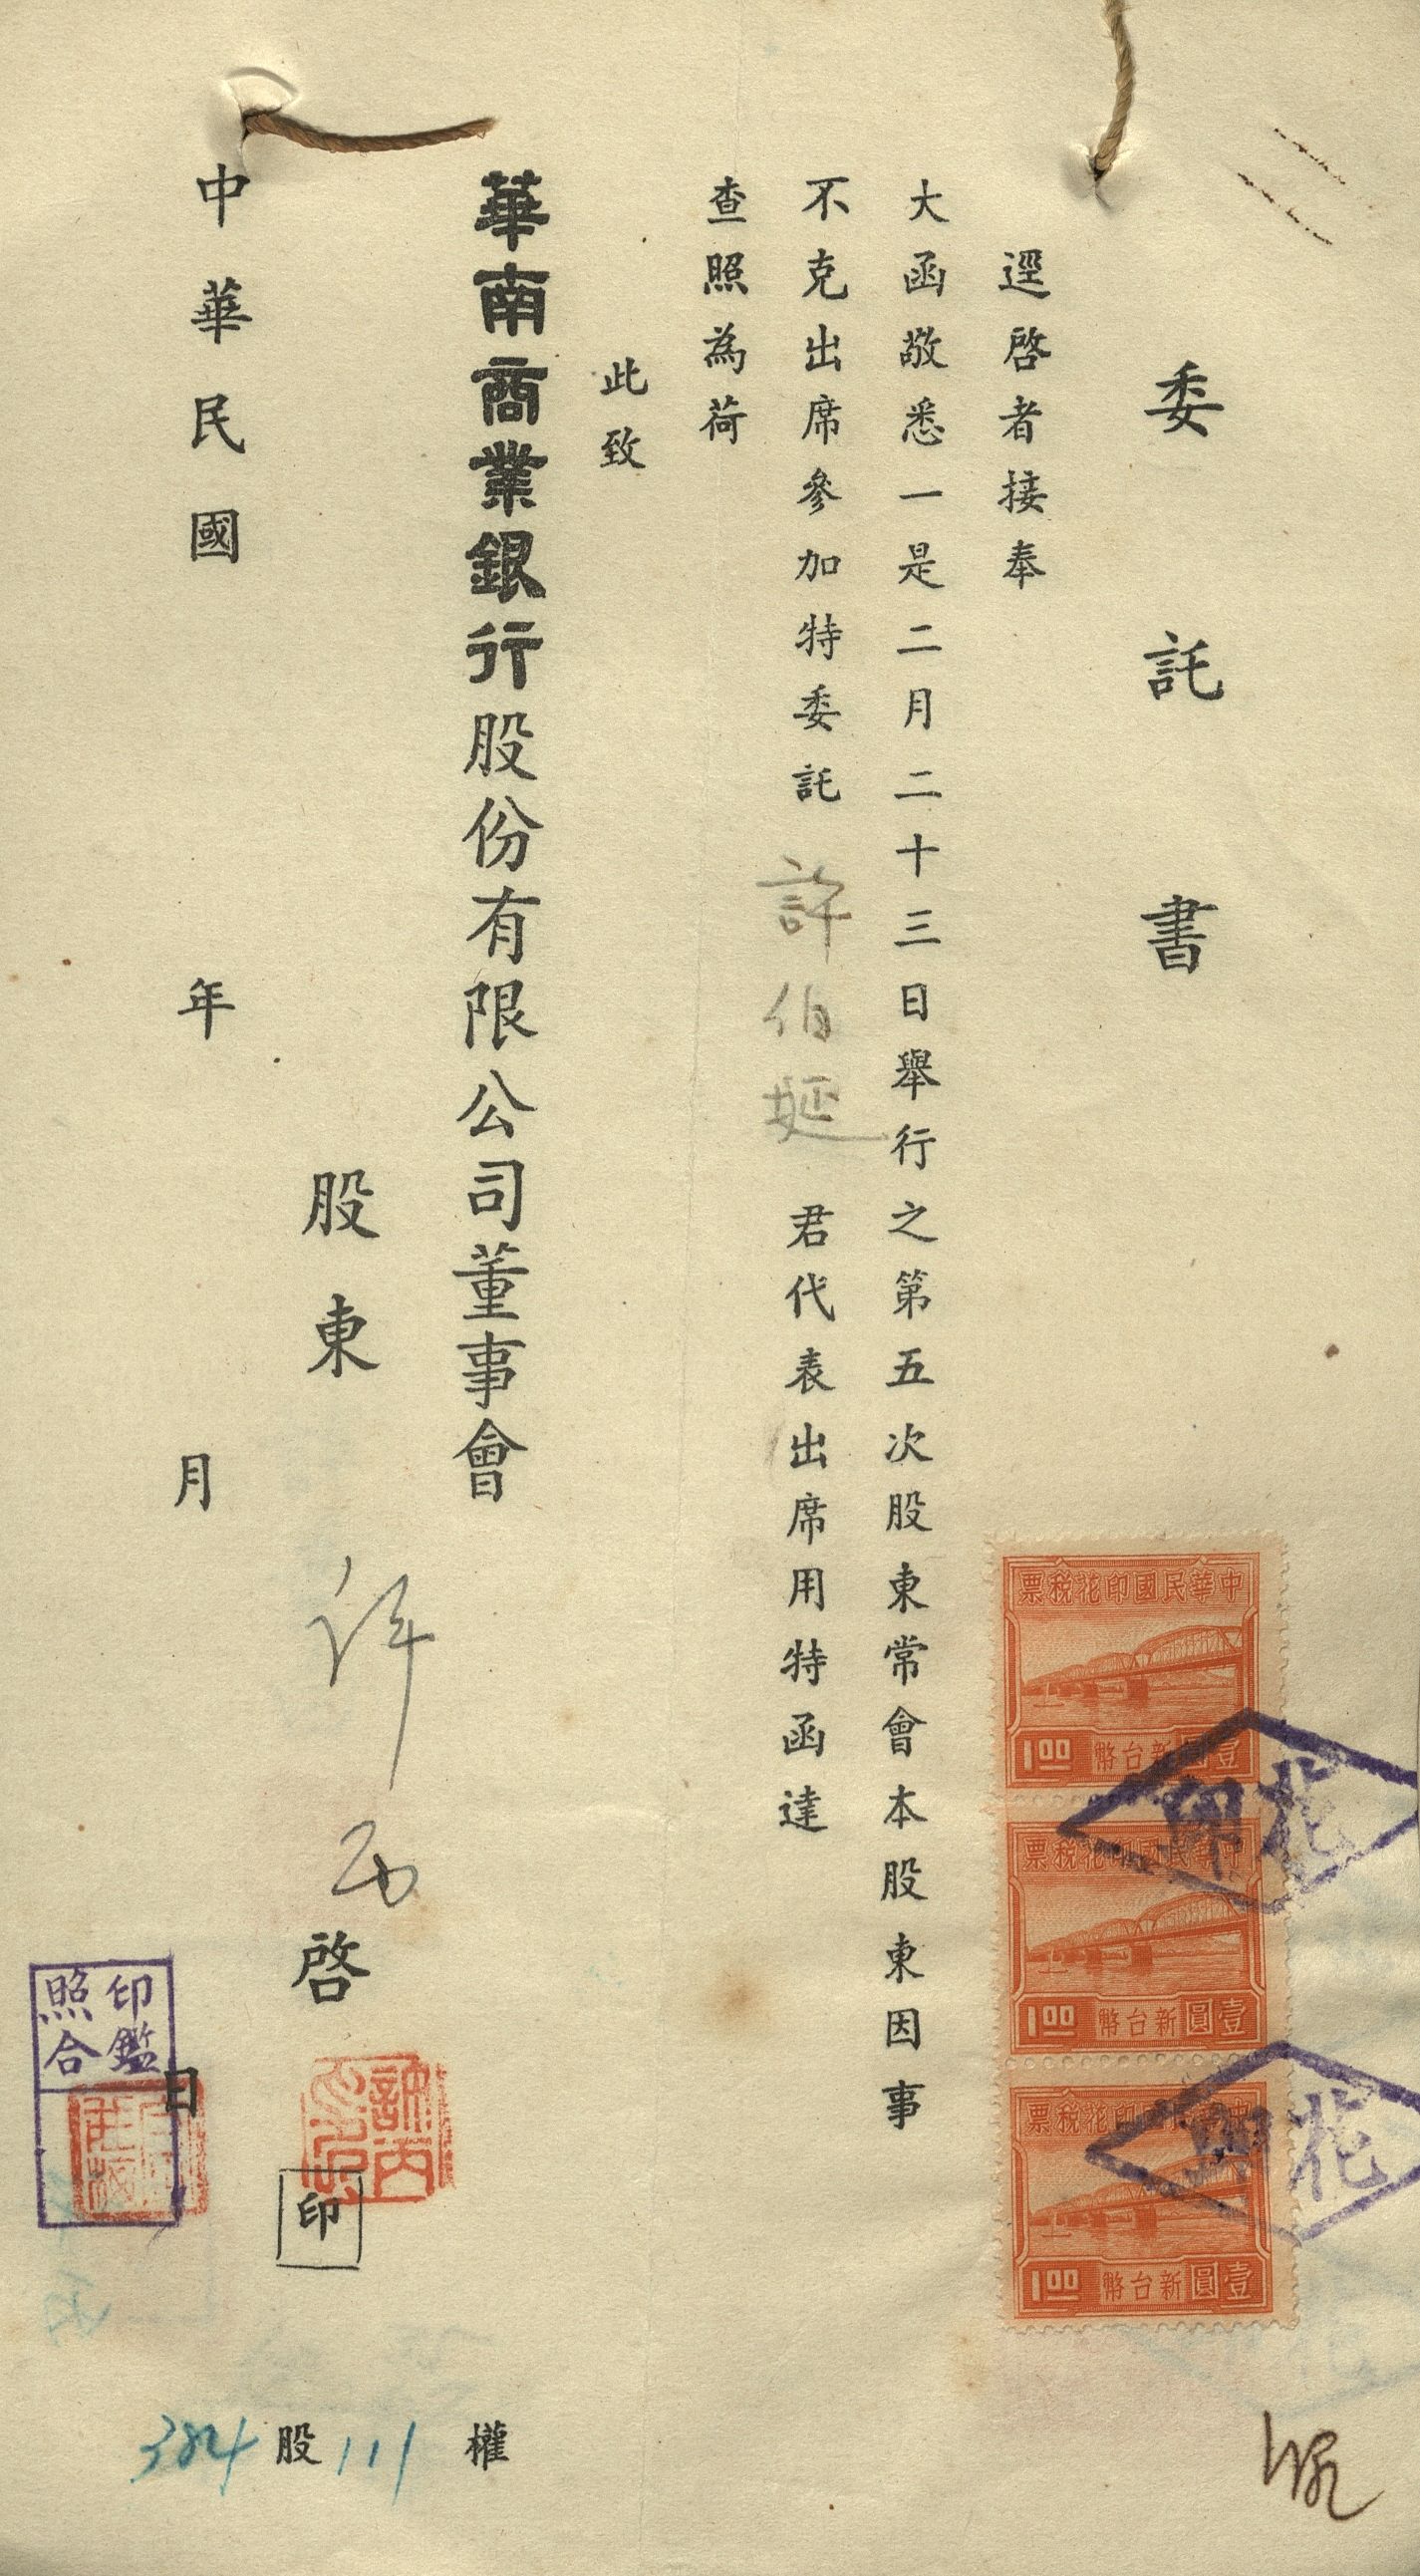 委託書
逕啓者接奉
大函敬悉一是二月二十三日舉行之第五次股東常會本股東因事
不克出席參加特委託 許伯埏 君代表出席用特函達
查照為荷
此致
華南商業銀行股份有限公司董事會
股東 許丙 啓
印
中華民國 年 月 日
384 股 111 權
印鑑
照合
中華民國印花稅票
壹圓新台幣 1.00
中華民國印花稅票
壹圓新台幣 1.00
中華民國印花稅票
壹圓新台幣 1.00
花印
花印